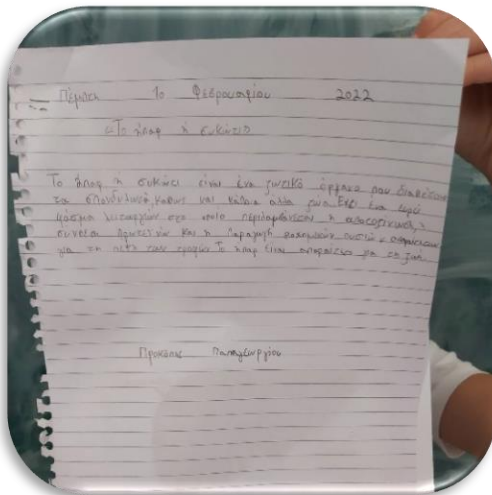 Πέμπτη 10 Φεβρουαρίου 2022
«Το ήπαρ ή συκώτι»
Το ήπαρ ή συκώτι είναι ένα ζωτικό όργανο που διαθέτουν
τα σπονδυλωτά καθώς και κάποια άλλα ζώα. Έχει ένα ευρύ
φάσμα λειτουργιών στο οποίο περιλαμβάνεται η αποτοξίνωση, η
σύνθεση πρωτεϊνών και η παραγωγή βιοχημικών ουσιών
για τη πέψη των τροφών. Το ήπαρ είναι απαραίτητο για τη ζωή.
Προκόπης Παπαγεωργίου